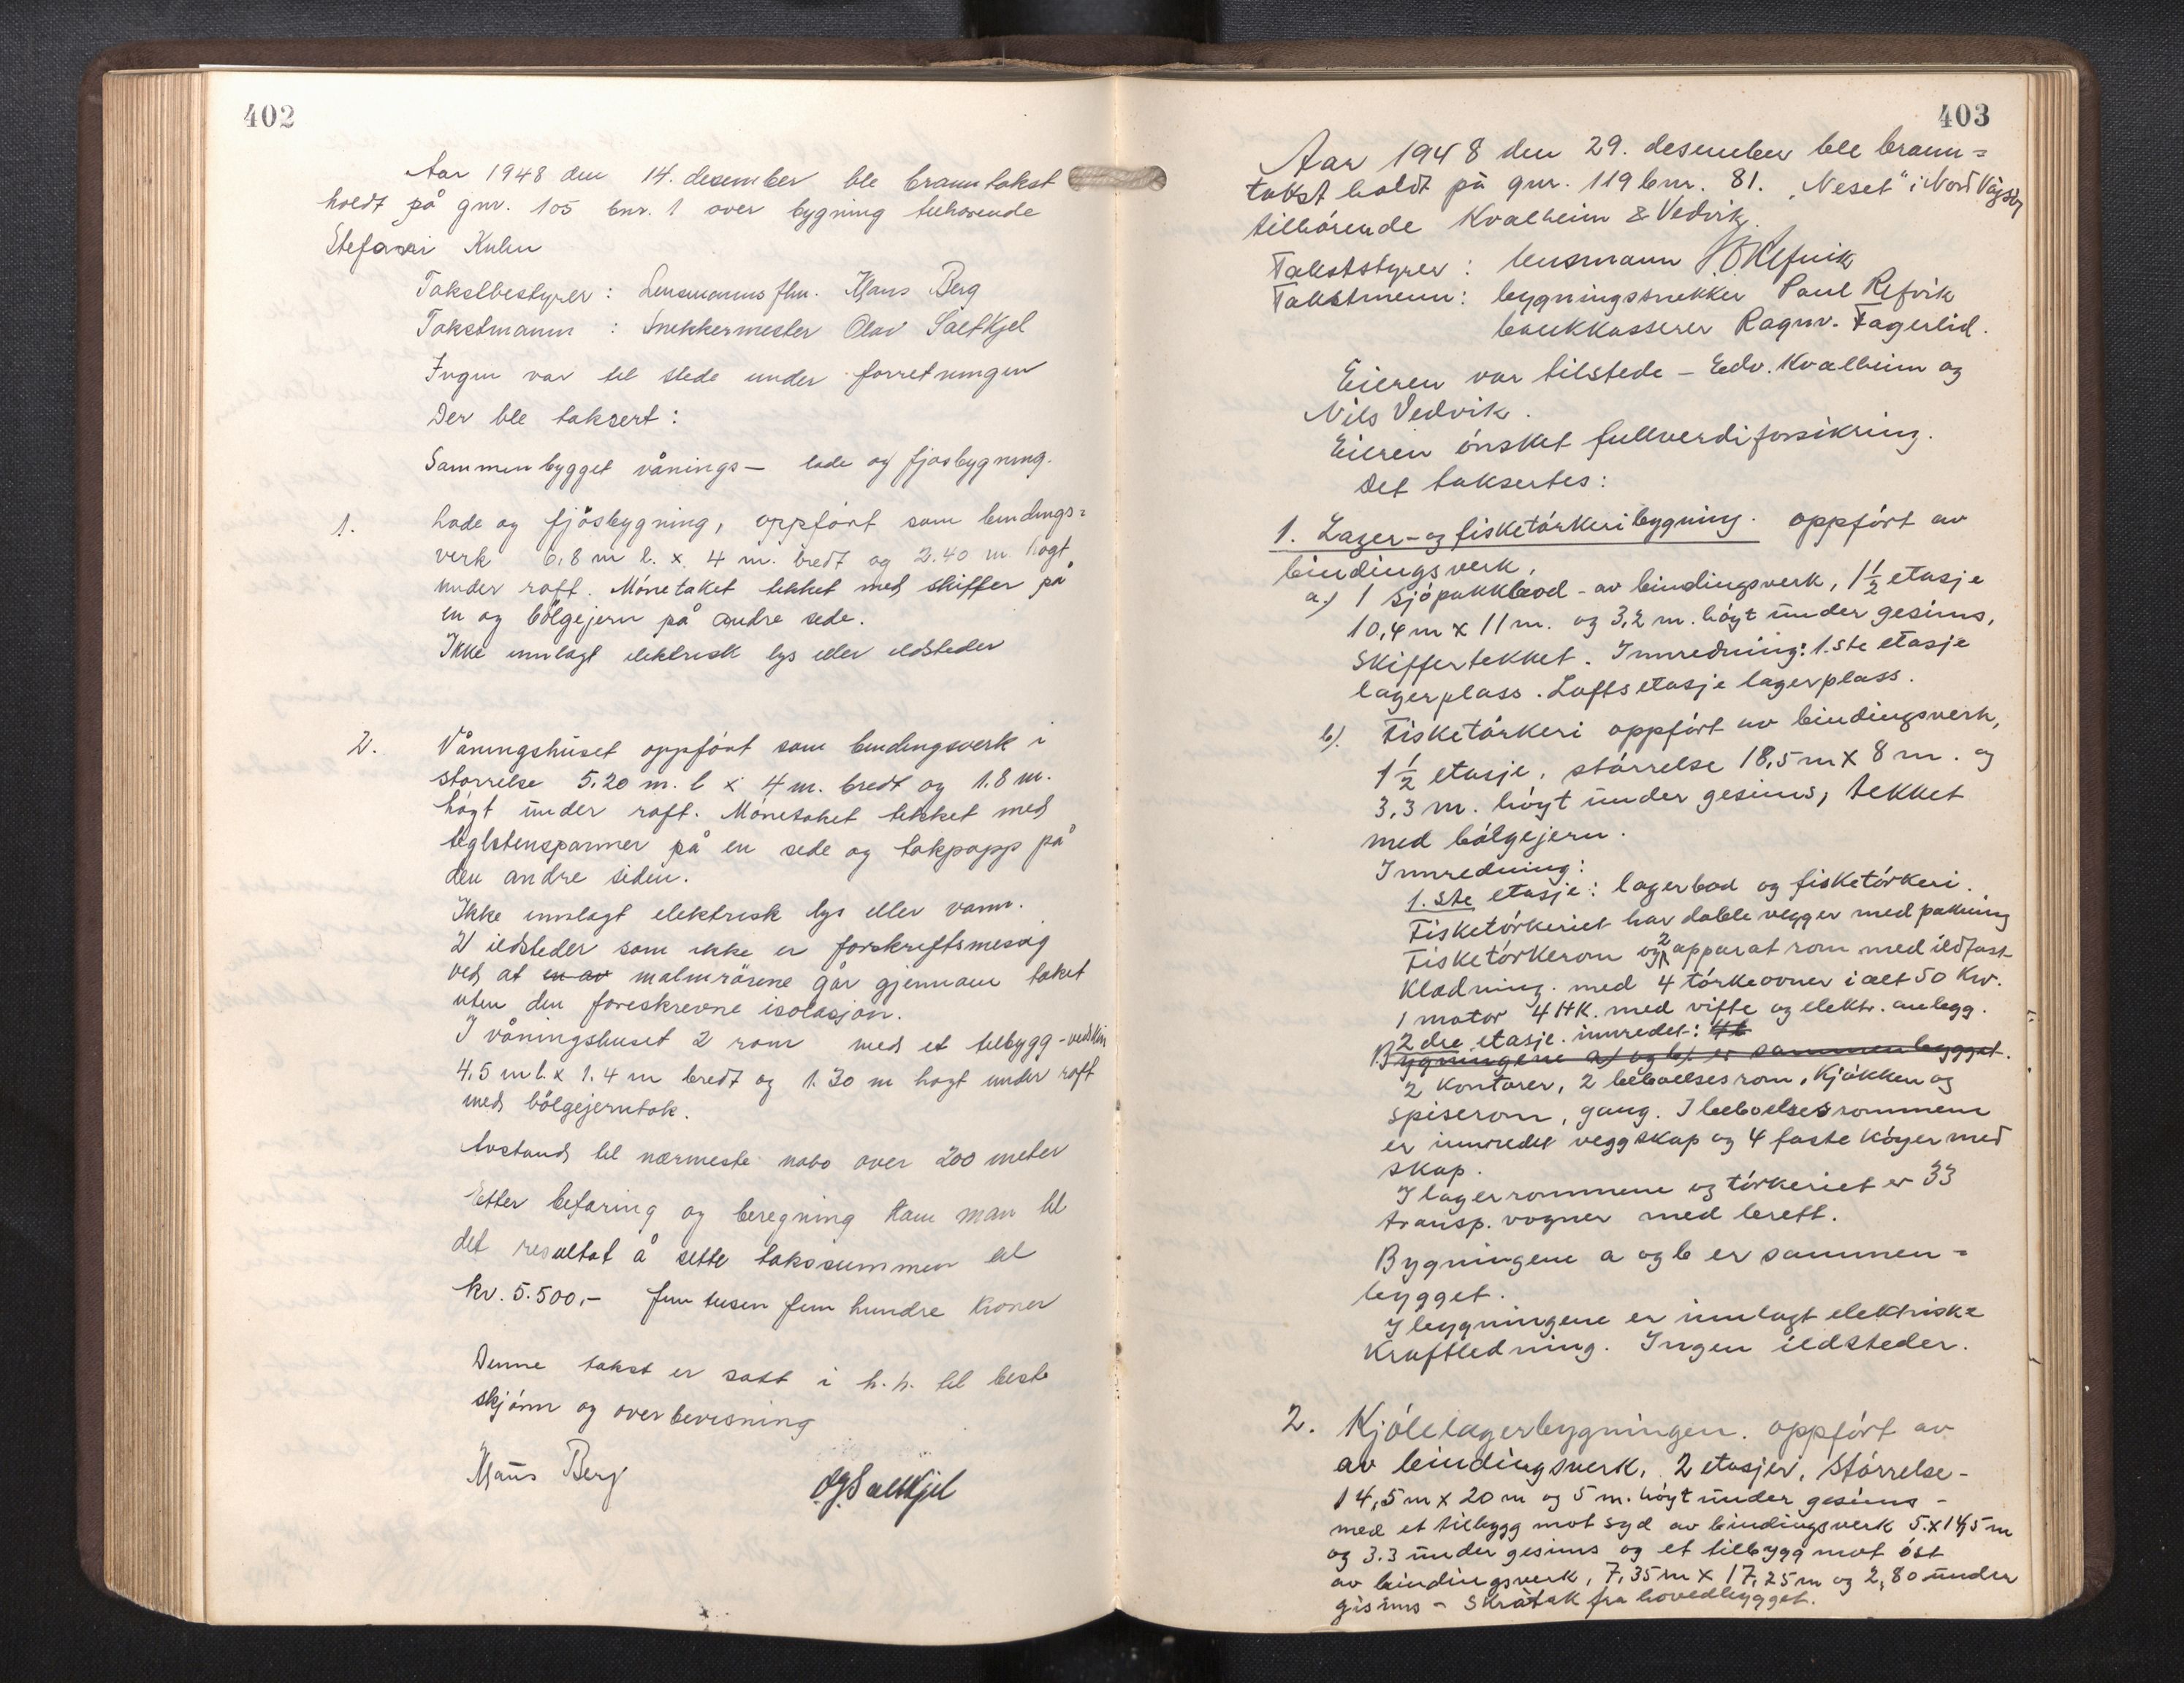 402
Aar 1948 den 14. desember ble branntakst
holdt på gnr. 105 bnr. 1 over bygning tilhørende
Stefani Kulen
Takstbestyrer: Lensmannsflm. Hans Berg
Takstmann : Snekkermester Olav Saltkjel
Ingen var til stede under forretningen
Der ble taksert:
Sammenbygget vånings- lade og fjøsbygning.
1. Lade og fjösbygning, oppfört som bindings=
verk 6,8 m l. x 4 m. bredt og 2.40 m. högt
under raft. Mönetaket tekket med skiffer på
en og bölgejern på andre side.
Ikke innlagt elektrisk lys eller ildsteder
2. Våningshuset oppfört som bindingsverk i
störrelse 5.20 m. l x 4 m. bredt og 1.8 m.
högt under raft. Mönetaket tekket med
teglstenspanner på en side og takpapp på
den andre siden.
Ikke innlagt elektrisk lys eller vann.
2 ildsteder som ikke er forskriftsmessig
ved at en av malmrörene går gjennom taket
uten den foreskrevne isolasjon.
I våningshuset 2 rom med et tilbygg-vedskin
4,5 m l. x 1.4 m bredt og 1.30 m hogt under raft
med bölgejerntak.
Avstand til nærmeste nabo over 200 meter
Etter befaring og beregning kom man til
det resultat å sette takssummen til
kr. 5.500,- fem tusen fem hundre kroner
Denne takst er satt i h.h. til beste
skjönn og overbevisning
Hans Berg O.J. Saltkjel
403
Aar 1948 den 29. desember ble brann=
takst holdt på gnr. 119 bnr. 81. "Neset" i Nord Vågsøy
tilhórende Kvalheim & Vedvik
Takststyrer: lensmann Refvik
Takstmenn: bygningssnekker Paul Refvik
bankkasserer Ragnv. Fagerlid.
Eieren var tilstede - Edv. Kvalheim og
Nils Vedvik.
Eieren ónsket fullverdiforsikring.
Det taksertes:
1. Lager- og fisketórkeribygning. oppfórt av
bindingsverk.
a.) 1 Sjópakkbod - av bindingsverk, 1½ etasje
10,4 m x 11 m. og 3,2 m. hóyt under gesims,
Skiffertekket. Innredning: 1.ste etasje
lagerplass. Loftsetasje lagerplass.
b). Fisketórkeri oppfórt av bindingsverk,
1½ etasje, stórrelse 18,5 m x 8 m. og
3,3 m. hóyt under gesims, tekket
med bólgejern.
Innredning:
1.ste etasje: lagerbod og fisketórkeri.
Fisketórkeriet har doble vegger med pakning
Fisketórkerom og 2 apparatrom med ildfast
Kladning. med 4 tórkeovner i alt 50 Kw.
1 motor 4 HK. med vifte og elektr. anlegg.
2 dre etasje. innredet:
Bygningene a) og b) er sammenbygget.
2 Kontorer, 2 beboelsesrom, Kjókken og
spiserom, gang. I beboelsesrommene
er innredet veggskap og 4 faste kóyer med
skap.
I lagerrommene og tórkeriet er 33
transp. vogner med brett.
Bygningene a og b er sammen=
bygget.
I bygningene er innlagt elektriske
Kraftledning. Ingen ildsteder.
2. Kjólelagerbygningen. oppfórt av
av bindingsverk, 2 etasjer, Stórrelse-
14,5 m x 20 m og 5 m. hóyt under gesims -
med et tilbygg mot syd av bindingsverk 5. x 14,5 m
og 3.3 under gesims og et tilbygg mot óst
av bindingsverk, 7,35 m x 17,25 m og 2,80 under
gisims - Skråtak fra hovedbygget.